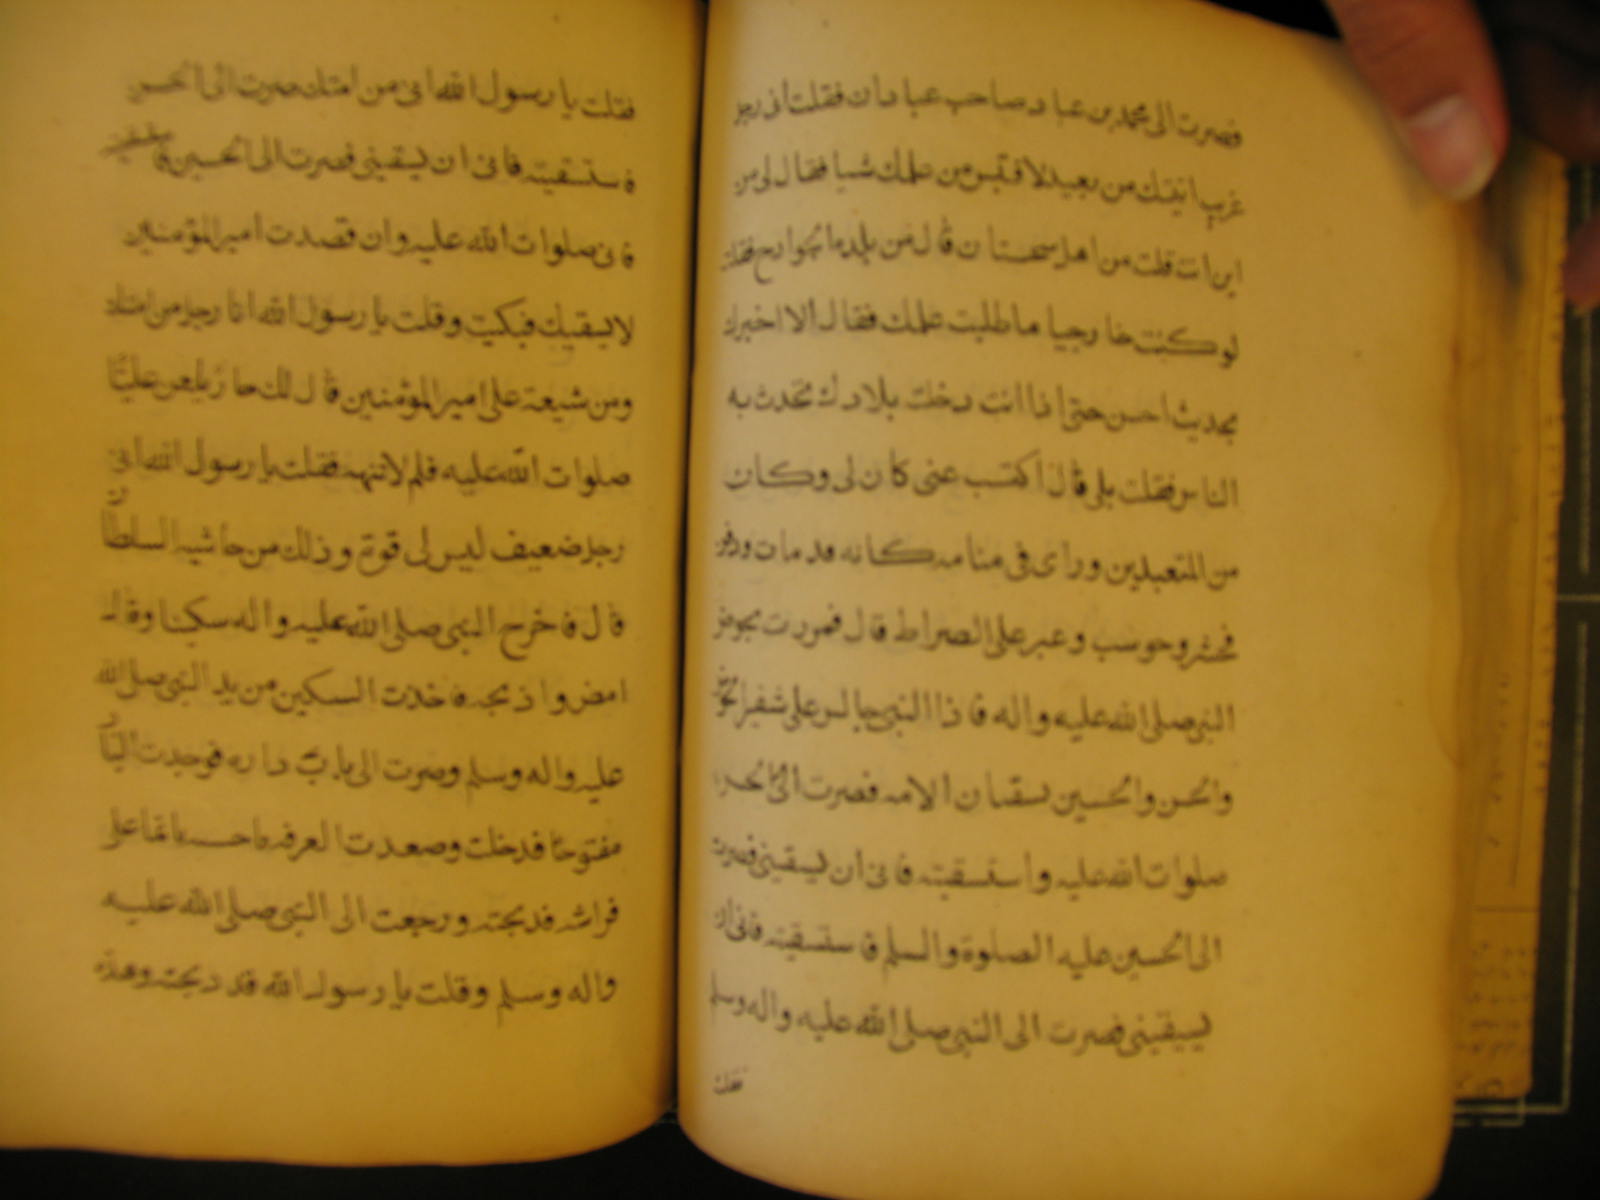 فصرت الى محمد بن عباد صاحب عبادان فقلت انى رجل
غريب اتيتك من بعيد لاقتبس من علمك شيا فقال لى من
اين انت قلت من اهل سجستان قال من بلد الخوارج فقلت
لو كنت خارجيا ما طلبت علمك فقال الا اخبرك
بحديث احسن حتى اذا انت دخلت بلادك تحدث به
الناس فقلت بلى قال اكتب عنى كان لى وكان
من المتعبدين وراى فى منامه كانه قد مات ودفن
فحشر وحوسب وعبر على الصراط قال فمررت بحوض
النبى صلى الله عليه واله فاذا النبى جالس على شفير الحوض
والحسن والحسين يسقيان الامه فصرت الى الحسن
صلوات الله عليه واستسقيته فابى ان يسقينى فصرت
الى الحسين عليه الصلوة والسلم فاستسقيته فابى ان
يسقينى فصرت الى النبى صلى الله عليه واله وسلم
فقلت
فقلت يا رسول الله انى من امتك صرت الى الحسن
فاستسقيته فابى ان يسقينى فصرت الى الحسين
فابى صلوات الله عليه وان قصدت امير المؤمنين
لا يسقيك فبكيت وقلت يا رسول الله انا رجل من امتك
ومن شيعة على امير المؤمنين قال لك جار يلعن عليًّا
صلوات الله عليه فلم لا تنهه فقلت يا رسول الله انى
رجل ضعيف ليس لى قوة وذلك من حاشيه السلطان
قال فاخرج النبى صلى الله عليه واله سكينا وقال
امض واذبحه فاخذت السكين من يد النبى صلى الله
عليه واله وسلم وصرت الى باب داره فوجدت الباب
مفتوحا فدخلت وصعدت الغرفه نائما على
فراشه فذبحته ورجعت الى النبى صلى الله عليه
واله وسلم وقلت يا رسول الله قد ذبحته وهذه